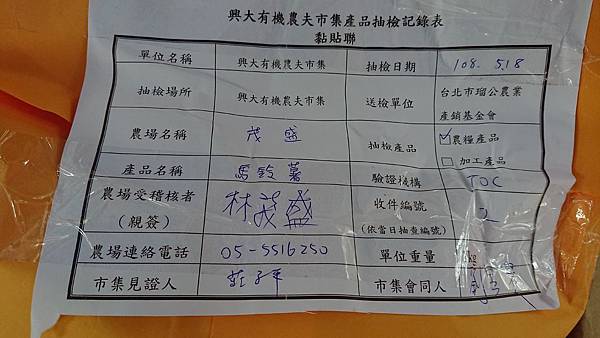 興大有機農夫市集產品抽檢記錄表
黏貼聯
單位名稱 興大有機農夫市集 抽檢日期 108. 5.18
抽檢場所 興大有機農夫市集 送檢單位 台北市瑠公農業
產銷基金會
農場名稱 茂盛 抽檢產品 ☑農糧產品
□加工產品
產品名稱 馬鈴薯 驗證機構 TOC
農場受稽核者 林茂盛 收件編號 2
(親簽) (依當日抽查編號)
農場連絡電話 05-5516250 單位重量
市集見證人 莊子平 市集會同人